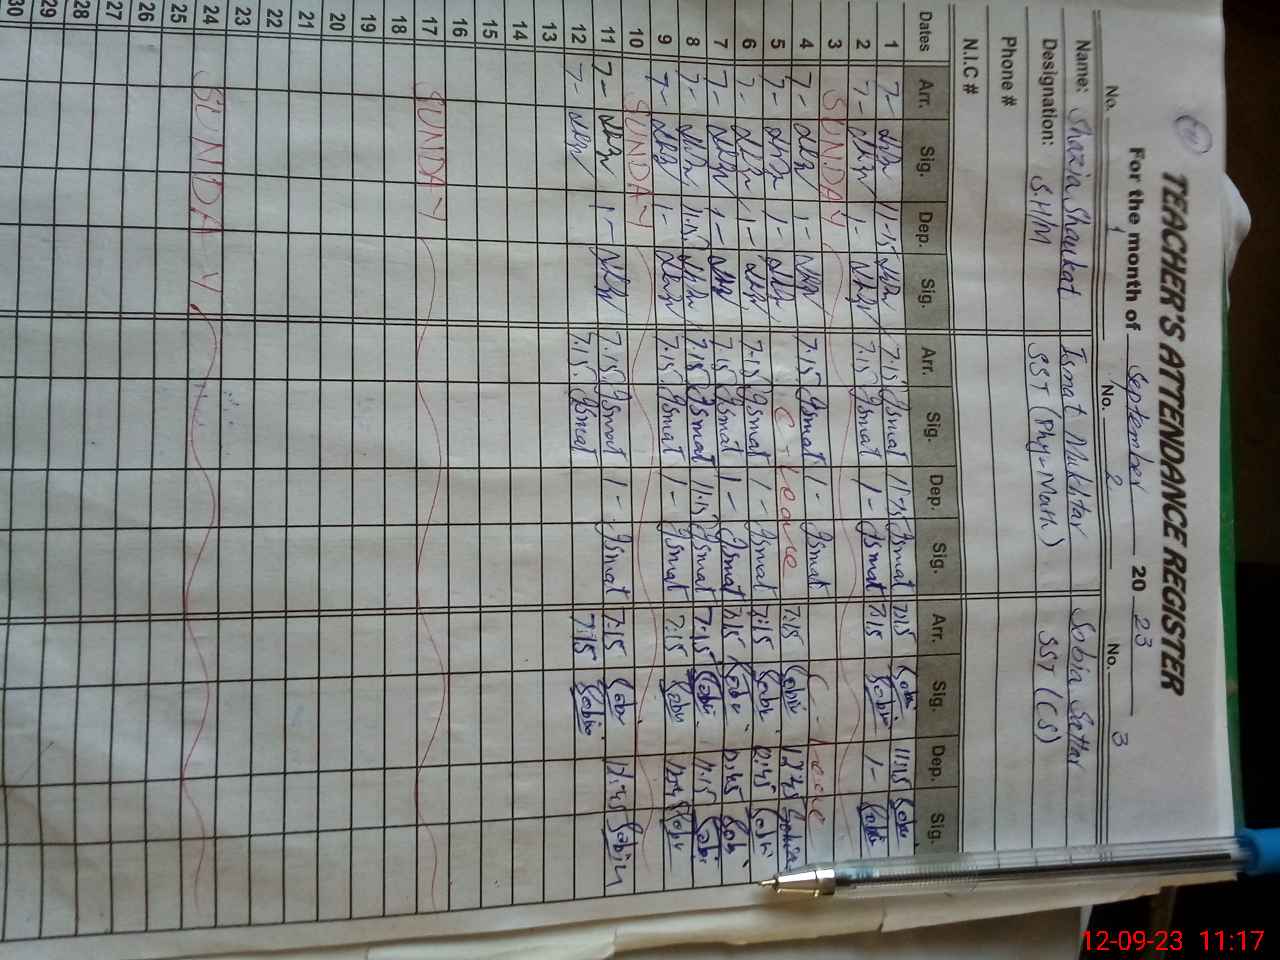 TEACHER'S ATTENDANCE REGISTER
For the month of September 20 23
No. 1 No. 2 No. 3
Name: Shazia Shaukat Ismat Mukhtar Sobia Sattar
Designation: S.H/M SST (Phy-Math) SST (CS)
Phone #
N.I.C #
Dates Arr. Sig. Dep. Sig. Arr. Sig. Dep. Sig. Arr. Sig. Dep. Sig.
1 7- 11-15 7.15 Ismat 11-15 Ismat 7:15 Sobi 11:15 Sobi
2 7- 1- 7.15 Ismat 1- Ismat 7:15 Sobi 1- Sobi
3 SUNDAY
4 7- 1- 7.15 Ismat 1- Ismat C - Leave
5 7- 1- C - Leave 7:15 Sobi 12:45 Sobia
6 7- 1- 7.15 Ismat 1- Ismat 7:15 Sobi 12:45 Sobi
7 7- 1- 7.15 Ismat 1- Ismat 7:15 Sobi 12:45 Sobi
8 7- 11.15 7.15 Ismat 11.15 Ismat 7:15 Sobi 11.15 Sobi
9 7- 1- 7.15 Ismat 1- Ismat 7:15 Sobi 12:45 Sobi
10 SUNDAY
11 7- 1- 7.15 Ismat 1- Ismat 7:15 Sobi 12:45 Sobia
12 7- 7.15 Ismat 7:15 Sobia
13
14
15
16
17 SUNDAY
18
19
20
21
22
23
24 SUNDAY
25
26
27
28
29
30
12-09-23 11:17